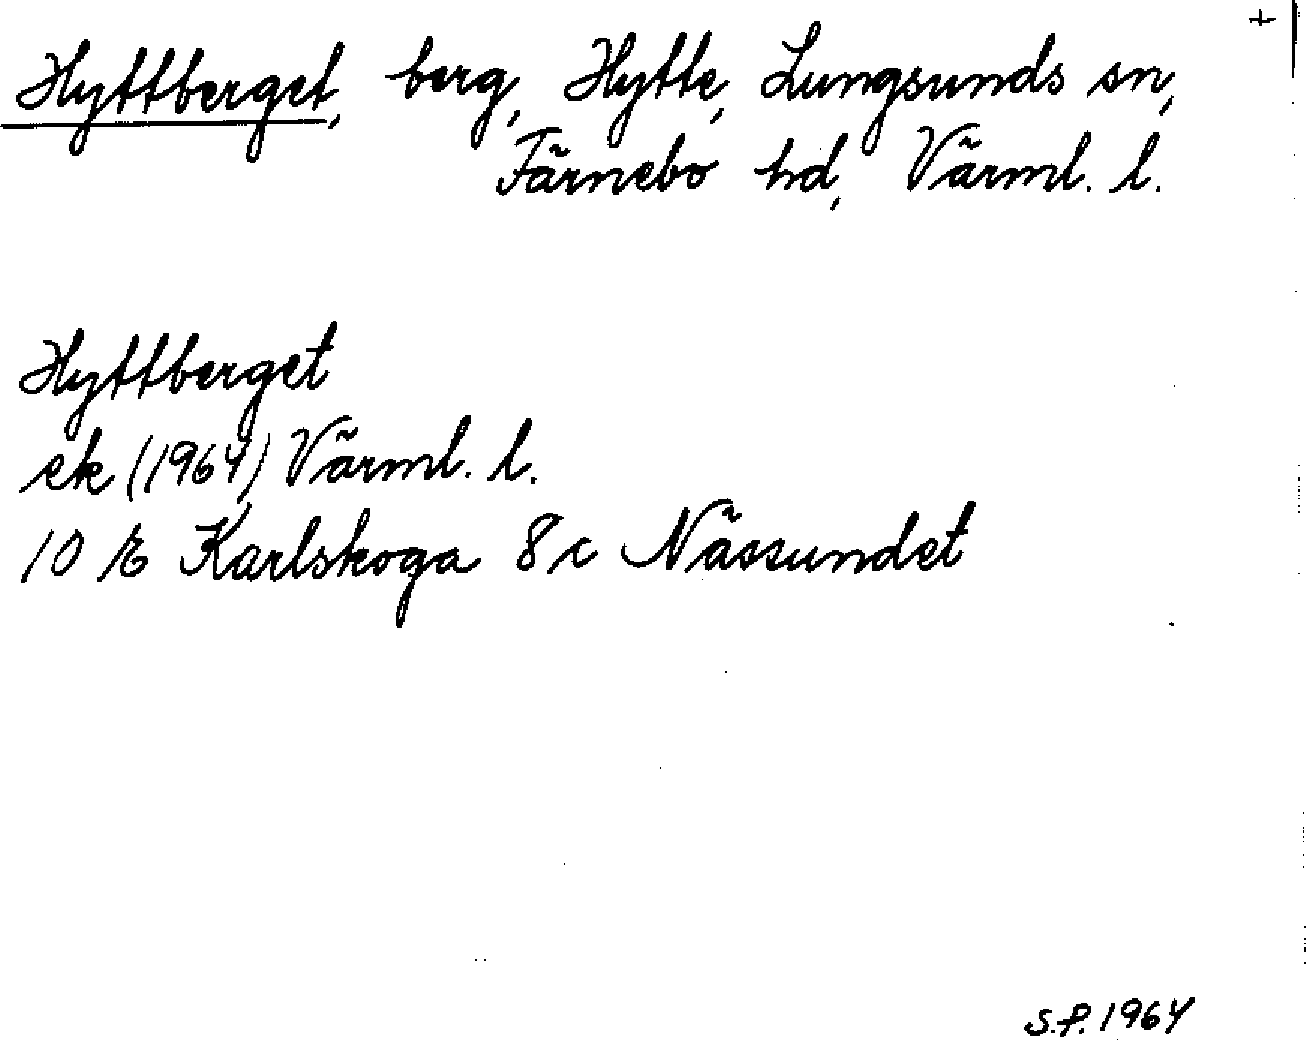 +
Hyttberget, berg, Hytte, Lungsunds sn,
Färnebo hd, Värml. l.
Hyttberget
ek (1964) Värml. l.
10 E Karlskoga 8c Nässundet
S.P. 1964